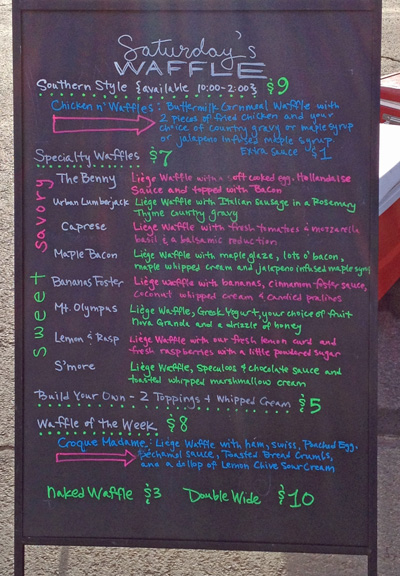 Saturday's
WAFFLE
Southern Style {available 10:00-2:00} $9
Chicken n' Waffles: Buttermilk Cornmeal Waffle with
2 pieces of fried chicken and your
choice of country gravy or maple syrup
or jalapeno infused maple syrup
Extra Sauce $1
Specialty Waffles $7
savory
The Benny Liège Waffle with a soft cooked egg, Hollandaise
Sauce and topped with Bacon
Urban Lumberjack Liège Waffle with Italian Sausage in a Rosemary
Thyme Country gravy
Caprese Liège Waffle with fresh tomatoes & mozzarella
basil & a balsamic reduction
sweet
Maple Bacon Liège Waffle with maple glaze, lots o' bacon,
maple whipped cream and jalapeno infused maple syrup
Bananas Foster Liège Waffle with bananas, cinnamon foster sauce,
coconut whipped cream & candied pralines
Mt. Olympus Liège Waffle, Greek Yogurt, your choice of fruit
Nova Granola and a drizzle of honey
Lemon & Rasp Liège Waffle with our fresh lemon curd and
fresh raspberries with a little powdered sugar
S'more Liège Waffle, Speculoos & chocolate sauce and
toasted whipped marshmallow cream
Build Your Own - 2 Toppings + Whipped Cream $5
Waffle of the Week $8
Croque Madame: Liège Waffle with ham, swiss, Poached Egg,
Béchamel sauce, Toasted Bread Crumbs,
and a dollop of Lemon Chive Sour Cream
Naked Waffle $3 Double Wide $10